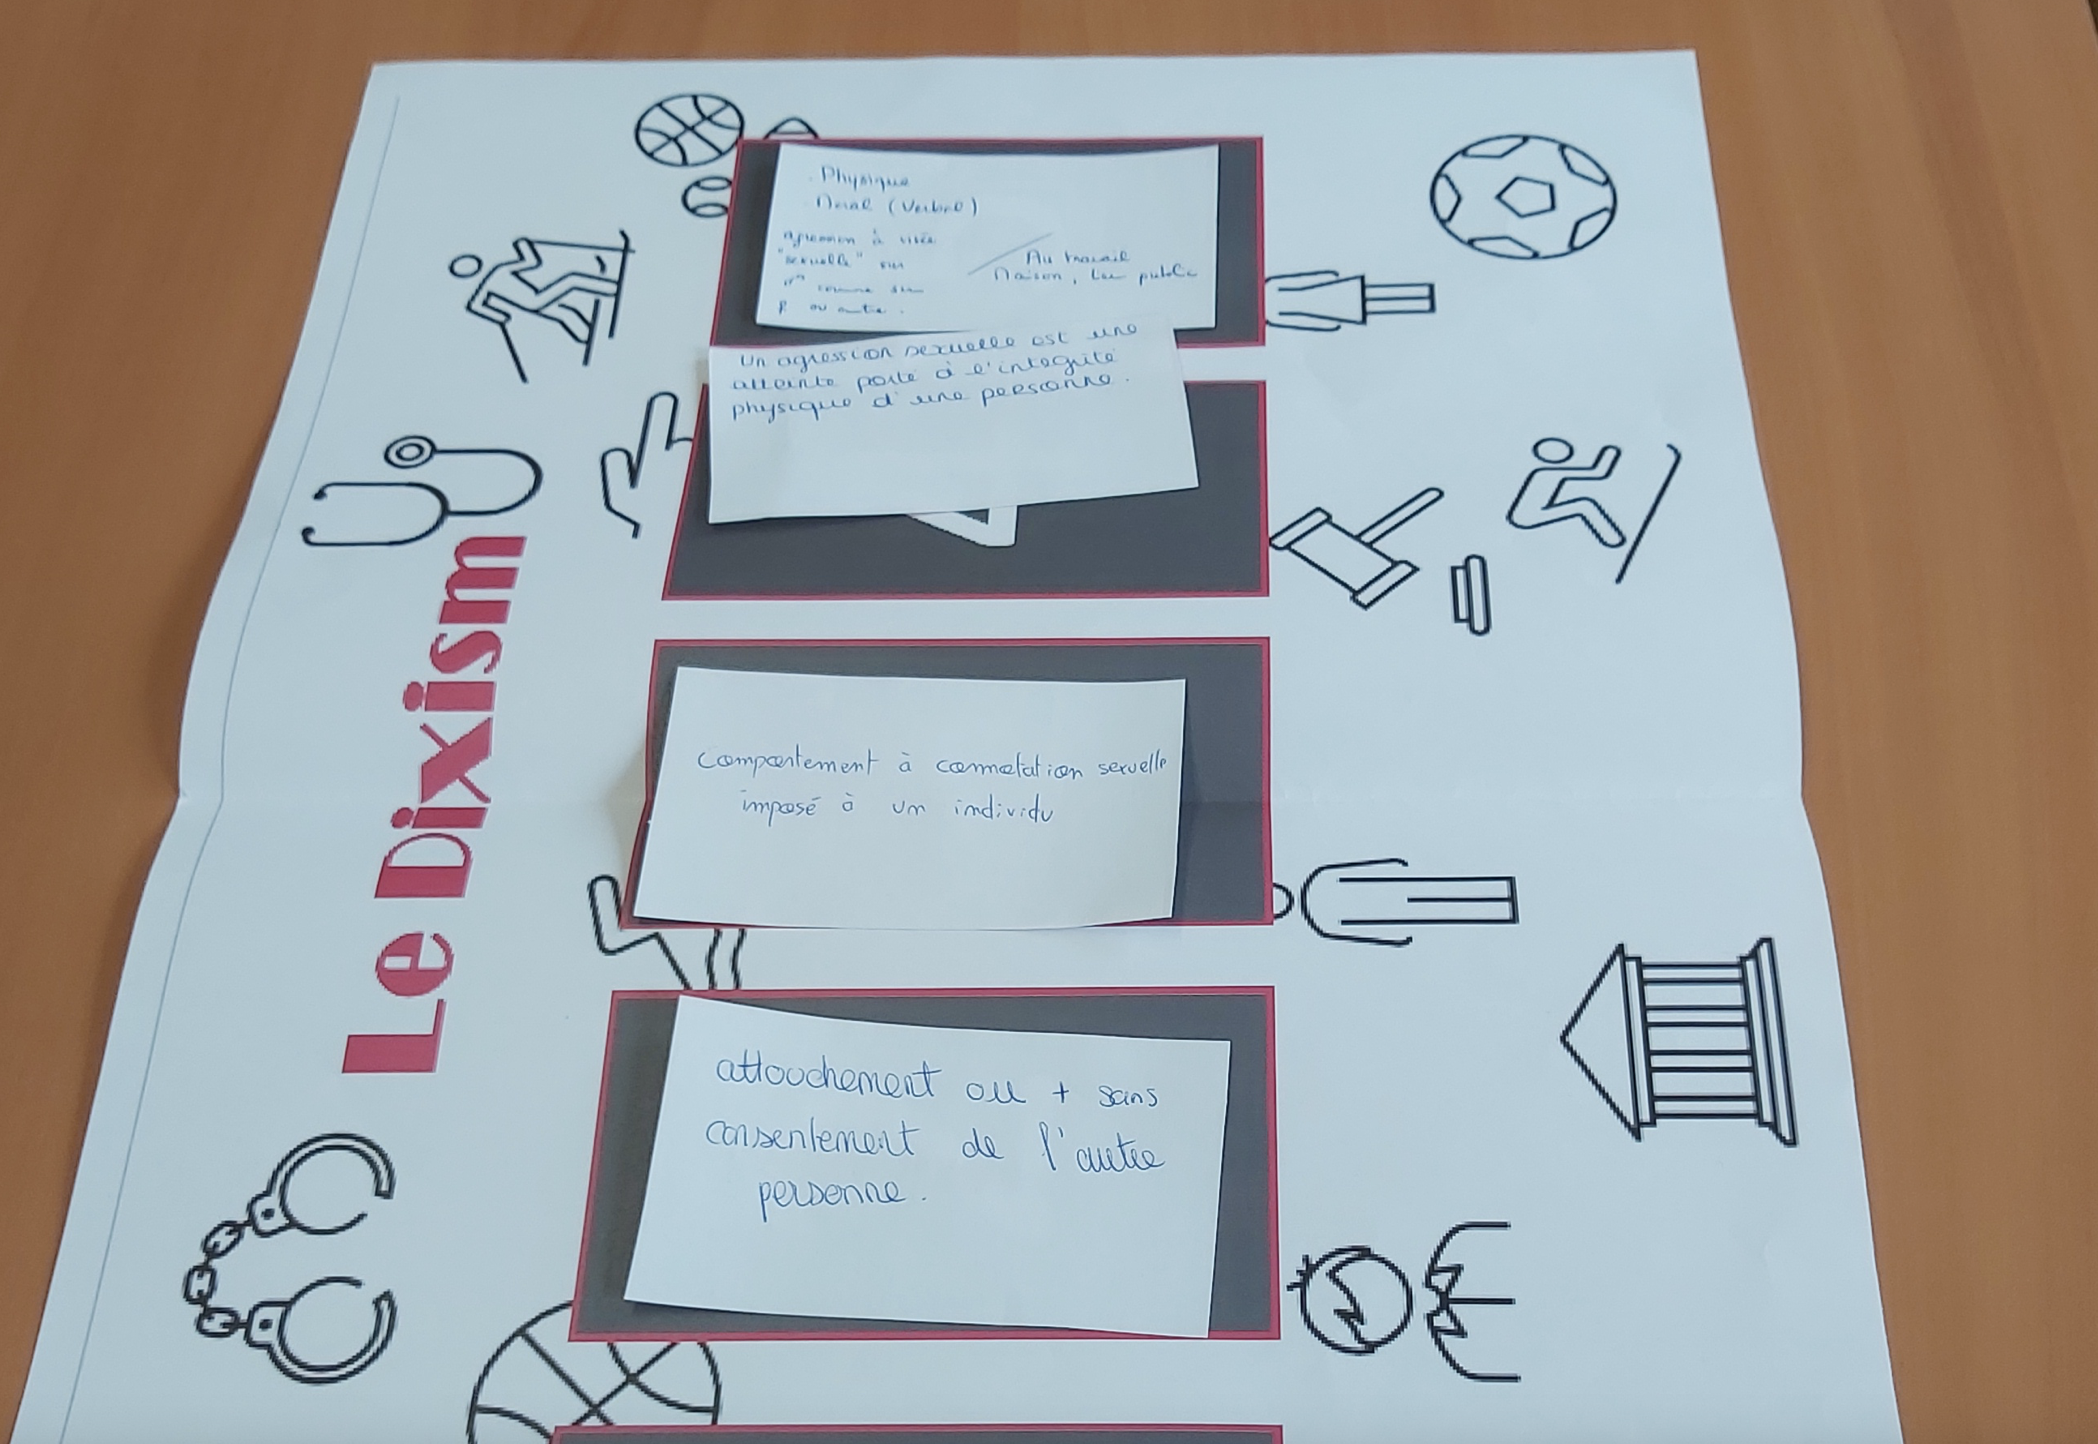 . Physique
. Moral (Verbal)
agression à visée
"sexuelle" sur
comme sur
F ou autre.
Au travail
Maison, Lieu public
Un agression sexuelle est une
atteinte porté à l'integrité
physique d'une personne.
Comportement à connotation sexuelle
imposé à un individu
attouchement ou + sans
consentement de l'autre
personne.
Le Dixism